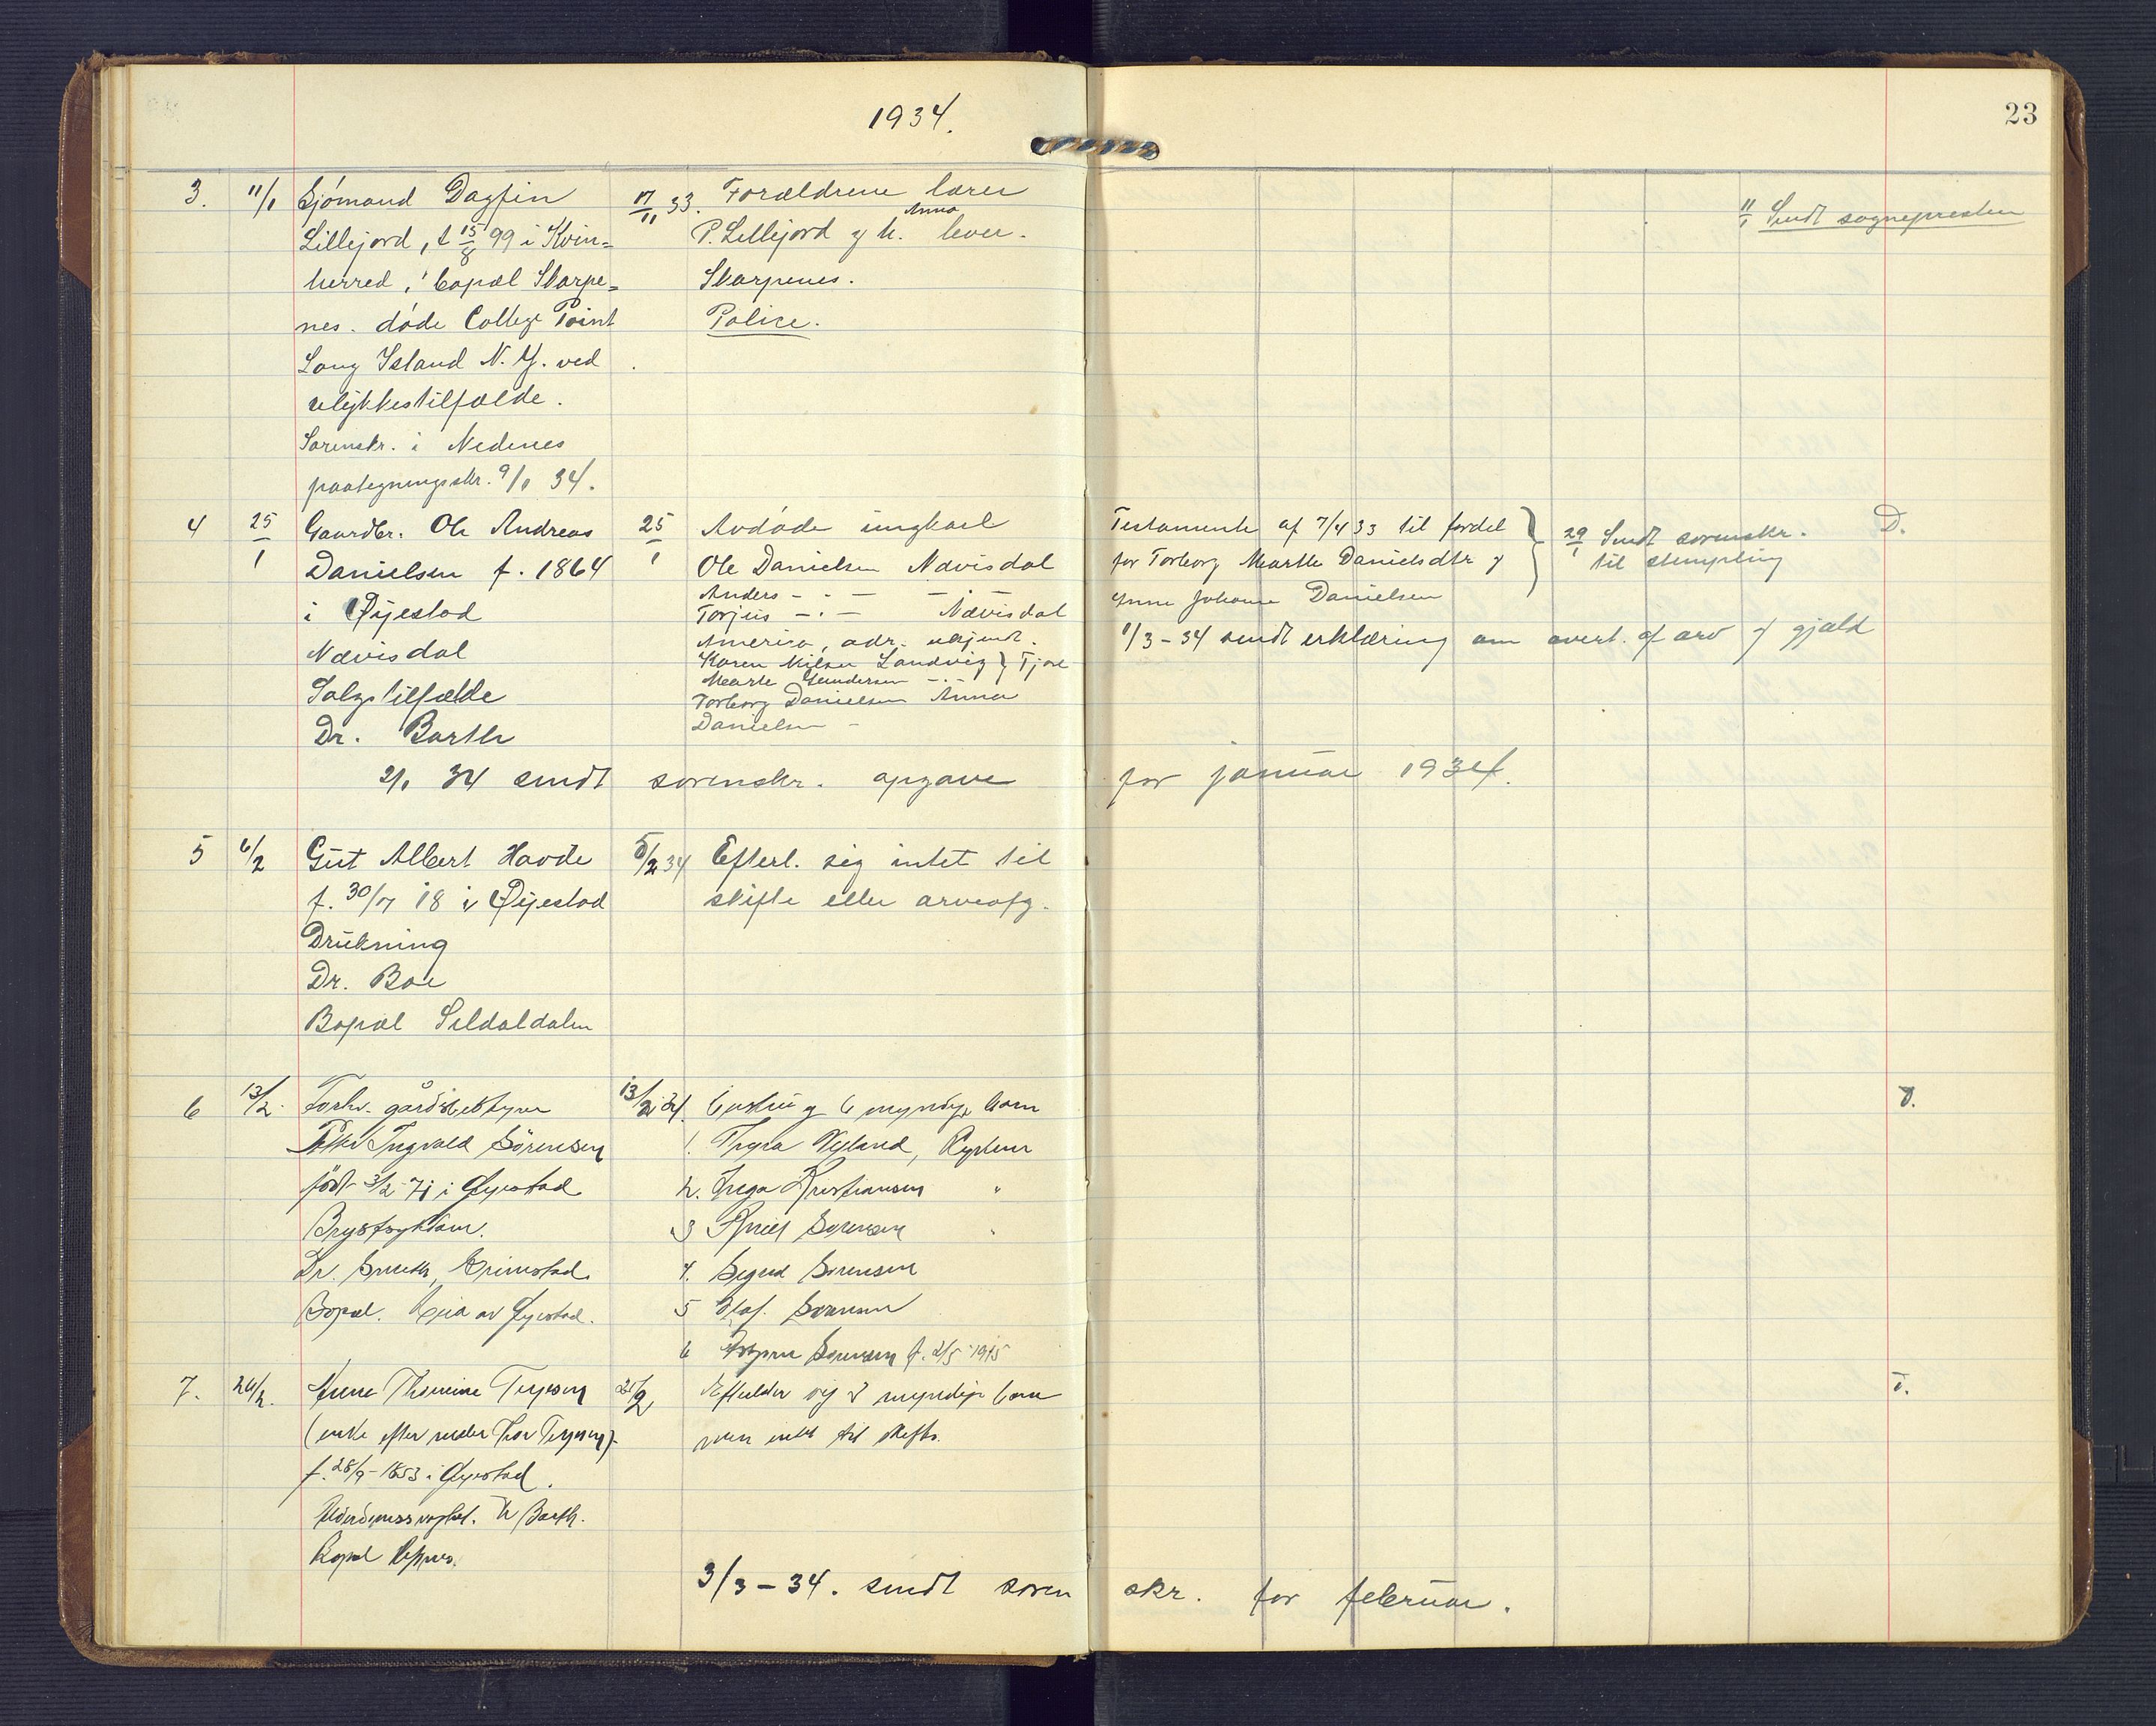 1934.
23
3. 11/1 Sjømand Dagfin 17/11 33. Forældrene lærer
Lillejord, f 15/8 99 i Kvin= P. Lillejord og h. Anna lever.
herred, bopæl Skarpe= Skarpenes.
nes. døde College Point Police.
Long Island N.Y. ved
ulykkestilfælde.
Sorenskr. i Nedenes
paategningsskr. 9/1 34.
11/1 Sendt sognepresten
4 25/1 Gaardbr. Ole Andreas 25/1 Avdøde ungkarl
Danielsen f. 1864 Ole Danielsen Nævisdal
i Øijestad Anders - - - - -
Torjus - - - Nævisdal
Nævisdal Amerika, adr. ukjendt.
Karen Nilsen Landvig } Fjære
Marte Gundersen - -
Salgstilfælde Torborg Danielsen Anna
Dr. Barth Danielsen -
Testamente af 7/4 33 til fordel
for Torborg Marthe Danielsdtr og
Anne Johanne Danielsen
29/1 Sendt sorenskr.
til stempling
D.
1/3-34 sendt erklæring om overt. af arv og gjæld
2/1 34 sendt sorenskr. opgave for januar 1934.
5 6/2 Gut Albert Havde 5/2 34 Efterl. sig intet til
f. 30/7 18 i Øijestad skifte eller arveafg.
Drukning
Dr. Boe
Bopæl Sildaldalen
6 13/2. Forhv. gårdsbestyrer 13/2 34. Enke og 6 myndige barn
Peder Ingvald Sørensen 1. Thyra Nyland, Rykene
født 3/2 - 71 i Øyestad 2. Inga Kristiansen "
Brystsykdom. 3 Sørensen "
Dr. Smith, Grimstad 4. Sigrid Sørensen
Bopæl. av Øyestad. 5 Olaf Sørensen
6 Sørensen f. 2/5 1915
D.
7. 26/2. Anne Thomine Terjesen 25/2 Efterlater sig 8 myndige barn
(enke efter reder Thor Terjesen) men intet til skifte.
f. 28/9-1853 i Øyestad.
Alderdomssvaghet. Dr Barth.
Bopæl
D.
3/3-34. sendt sorenskr. for februar.